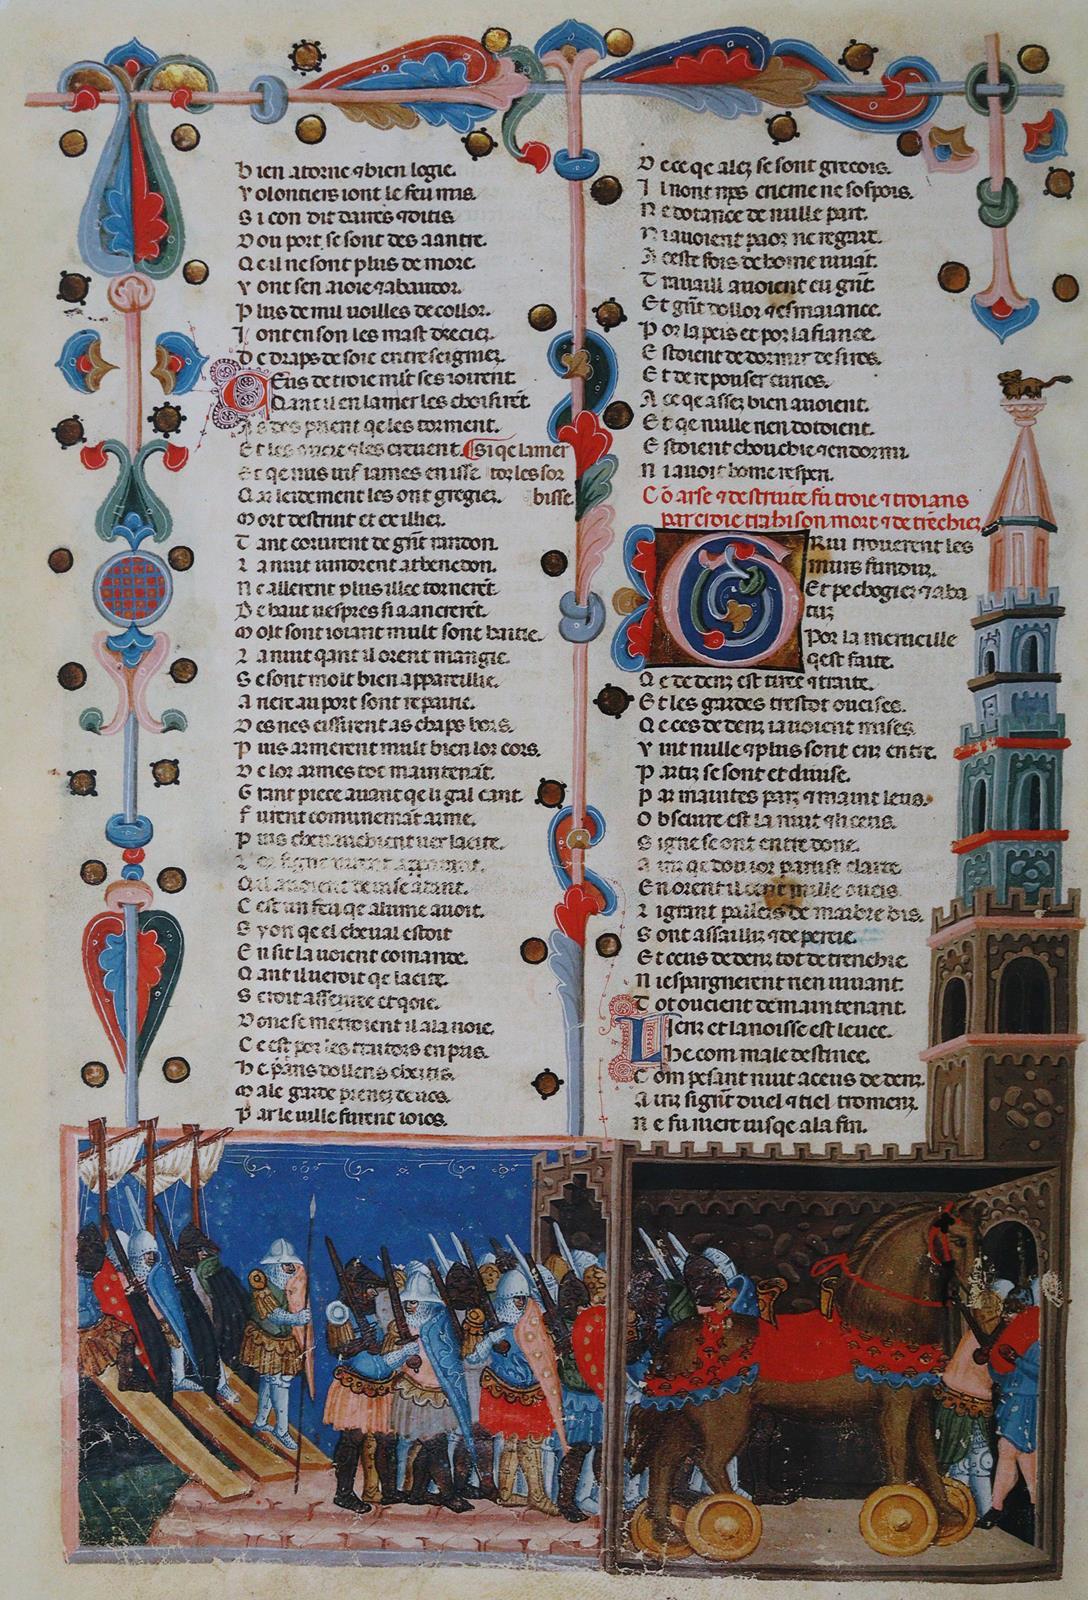 b ien atorne ⁊ bien logie.
V olontiers iont le feu mis.
S i con dit daires ⁊ ditis.
D ou port se sont des aantre.
Q e il ne sont plus de more.
V ont sen a ioie ⁊ abaudor.
P lus de mil uoilles de collor.
I ont en son les mast drecier.
D e draps de soie entreseignier.
C eus de troie mlt ses ioirent
Q ant il en la mer les choisirẽt
prient qe les torment.
E t les uns ⁊ les creuent. si qe la mer
E t qe nus uif iames en isse tor les sor
Q ar leidement les ont gregier. bisse.
M ort destruit et exillier.
T ant corurent de gñt randon.
L a nuit uindrent a thenedon.
N e allerent plus illec tornerẽt.
D e haut uespres si a ancrerẽt.
M olt sont ioiant mult sont baitie.
L a nuit qant il orent mangie.
S e sont molt bien appareillie.
A riere au port sont repairie.
D es nes eissirent as chaps hors.
P uis armerent mult bien lor cors.
D e lor armes tot maintenãt.
G rant piece auant qe li gal cant.
F urent comunemãt arme.
P uis cheuauchient uer la cite.
Q il
C est un feu qe alume auoit.
S yon qe el cheual estoit
E nsit la uoient comande.
Q ant il ueroit qe la cite.
S eroit asseuree et qoie.
D onc se metroient il a la uoie.
C e est por les traitors en pris.
H e p̃ans dollens cheitis.
M ale garde prenez de uos.
P ar le uille furent ioios.
D ece qe alez se sont grecois.
I l nont mes creme ne sospois.
N e dotance de nulle part.
N i auoient paor ne regart.
A ceste fois de home uiuãt.
T rauaill auoient eu gñt.
E t gñt dollor ⁊ esmaiance.
P or la peis et por la fiance.
E stoient de dormir desires.
E t de reponser curios.
A ce qe assez bien auoient.
E t qe nulle rien dotoient.
E stoient chouchie ⁊ endormi.
N i auoit home resperi.
Cõ arse ⁊ destruite fu troie ⁊ troians
par croie trahison mort ⁊ detrẽchiez
G Riu trouerent les
murs fondur.
Et pechogier ⁊ aba
tuz
Por la merueille
qest faite.
Q e dedenz est tiree ⁊ traite.
E t les gardes trestot oucises.
Q e ces dedenz i auoient mises.
V int mille ⁊ plus sont enz entre.
P artiz se sont et diuise.
P ar maintes parz ⁊ maint leus.
O bscure est la nuit
S igne se ont entre done.
clarte.
E n orent il cent mille oucis.
L i grant palleis de marbre bis.
S ont assailliz ⁊ deperdie.
E t ceus dedenz tot detrenchie.
N i espargnerent rien uiuant.
T ot oucient demaintenant.
L i criz et la noisse est leuee.
H e com male destinee.
C om pesant nuit a ceus dedenz.
A inz si gñt duel ⁊ tiel tormenz.
N e fu mert iusqe a la fin.